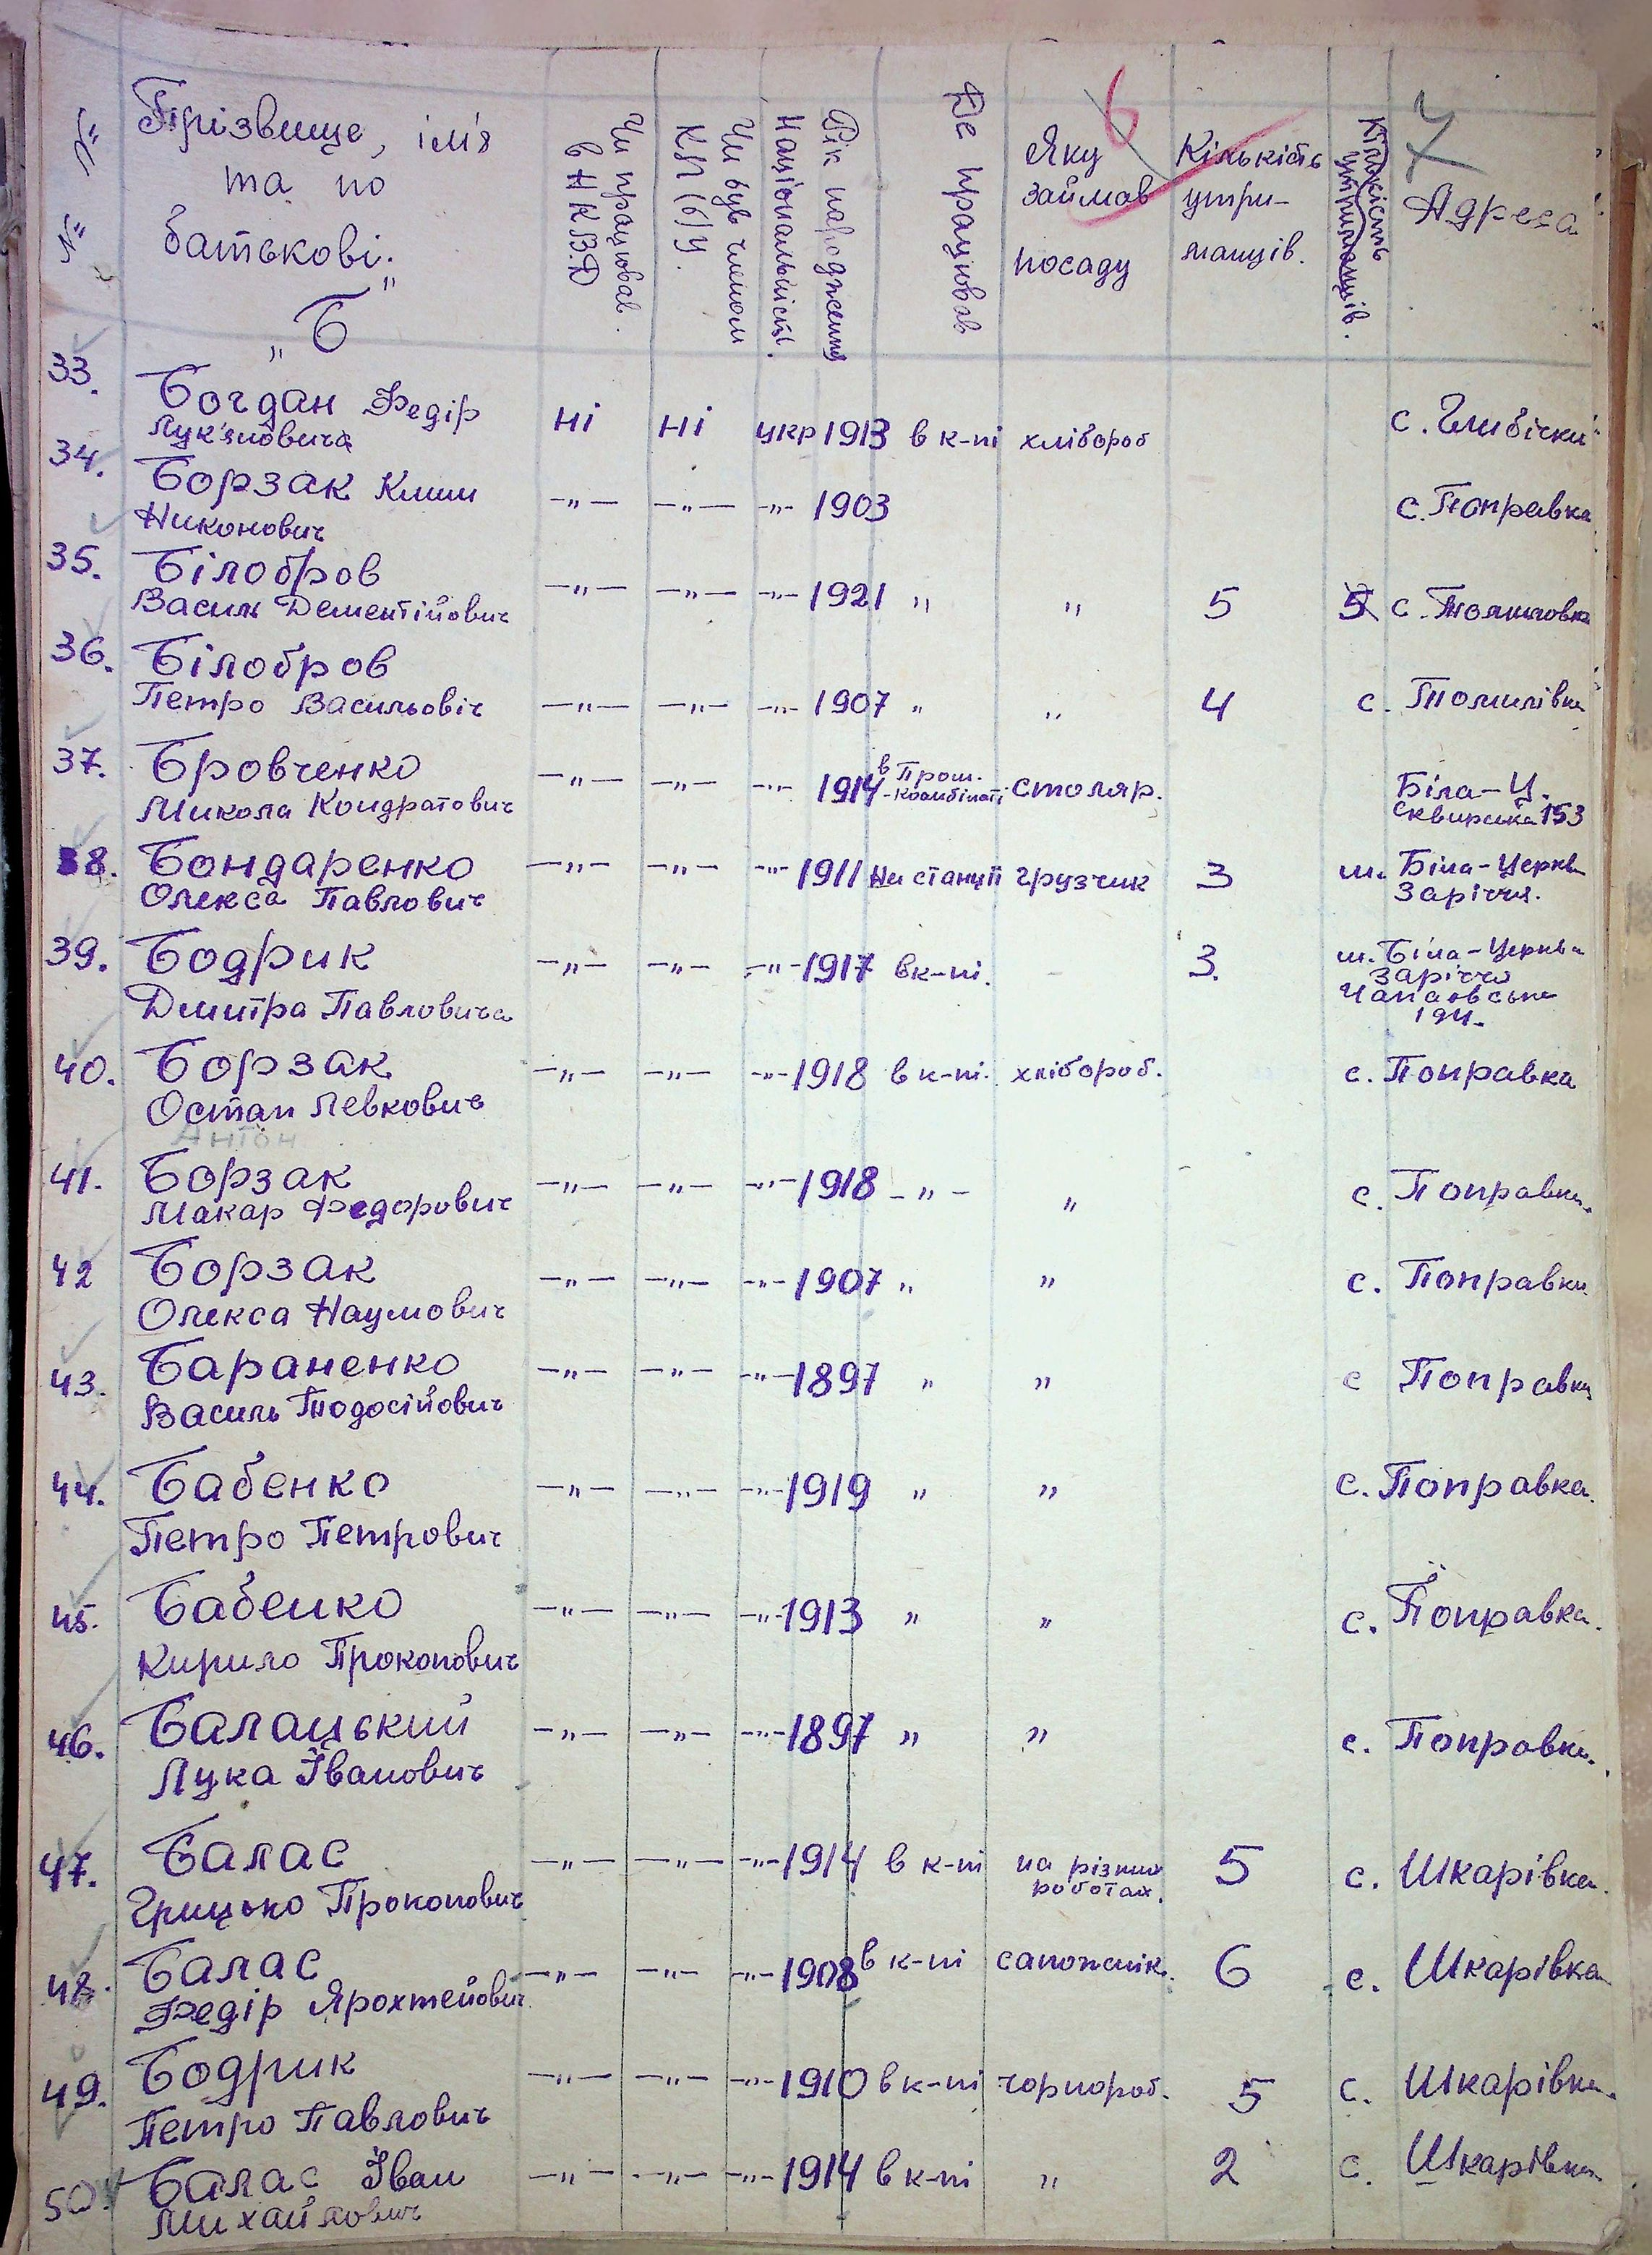 № №
Прізвище, ім'я
та по
батькові.
Чи працював
в Н К В Д
Чи був членом
КП(б)У.
Національність.
Рік народження
Де працював
Яку
займав
посаду
Кількість
утри-
манців.
Кількість
утриманців.
Адреса
6
7
„Б"
33. Богдан Федір ні ні укр 1913 в к-пі хлібороб с. Глибічки
Лук'яновича
34. Борзак Клим —"— —"— —"— 1903 с. Поправка
Никонович
35. Білобров —"— —"— —"— 1921 " " 5 5 с. Томиловка
Василь Дементійович
36. Білобров
Петро Васильовіч —"— —"— —"— 1907 " " 4 с. Томилівка
37. Бровченко —"— —"— —"— 1914 в Пром.-комбінаті столяр. Біла-Ц.
Микола Кондратович Сквирська 153
38. Бондаренко —"— —"— —"— 1911 На станції грузчик 3 м. Біла-Церква
Олекса Павлович Заріччя.
39. Бодрик —"— —"— —"— 1917 в к-пі. - 3. м. Біла-Церква
Дмитра Павловича Заріччя
40. Борзак —"— —"— —"— 1918 в к-пі. хлібороб. с. Поправка
Остап Левкович
Антон
41. Борзак —"— —"— —"— 1918 —"— " с. Поправка.
Макар Федорович
42 Борзак —"— —"— —"— 1907 " " с. Поправка
Олекса Наумович
43. Бараненко —"— —"— —"— 1897 " " с Поправка
Василь Тодосійович
44. Бабенко —"— —"— —"— 1919 " " с. Поправка.
Петро Петрович
45. Бабенко —"— —"— —"— 1913 " " с. Поправка.
Кирило Прокопович
46. Балацький —"— —"— —"— 1897 " " с. Поправка.
Лука Іванович
47. Балас —"— —"— —"— 1914 в к-пі на різних 5 с. Шкарівка.
Грицько Прокопович роботах.
48. Балас —"— —"— —"— 1908 в к-пі сапожнік. 6 с. Шкарівка
Федір Ярохтейович
49. Бодрик —"— —"— —"— 1910 в к-пі чорнороб. 5 с. Шкарівка.
Петро Павлович
50. Балас Іван —"— —"— —"— 1914 в к-пі " 2 с. Шкарівка
Михайлович